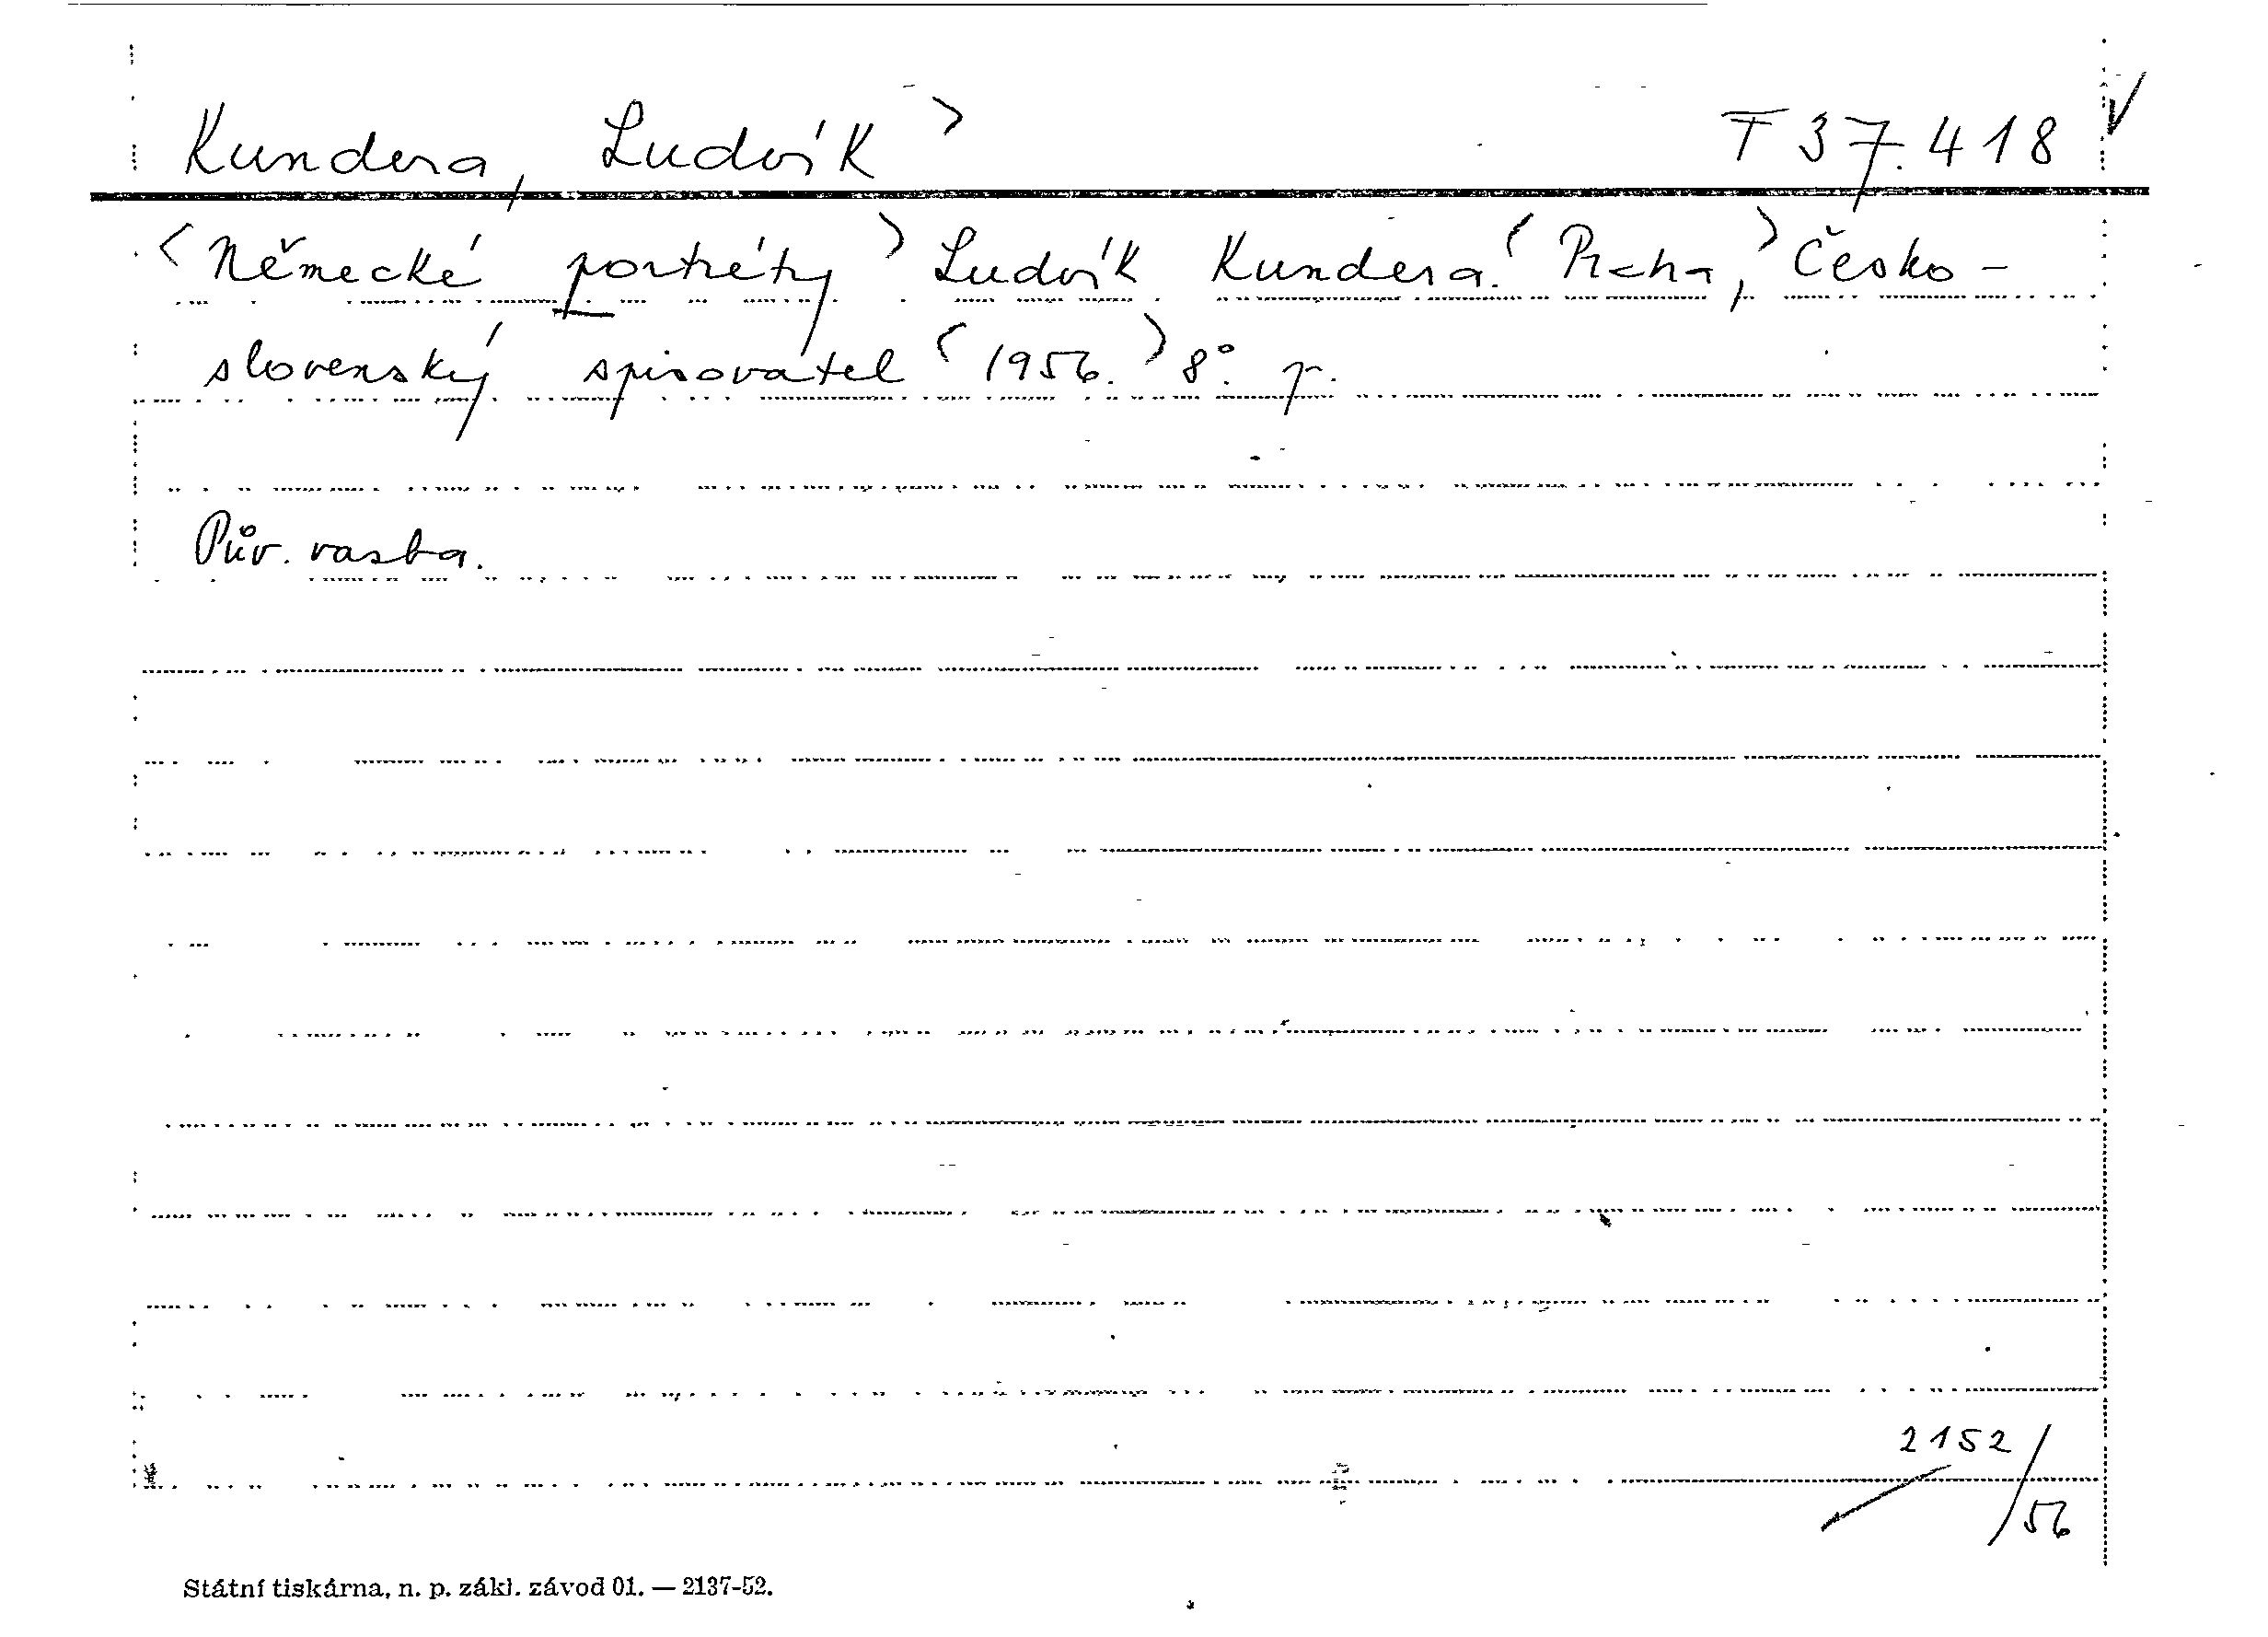 Kundera, Ludvík > T 37.418 √
<Německé portréty> Ludvík Kundera. (Praha,) Česko-
slovenský spisovatel (1956.) 8°. p.
Pův. vazba.
2152/56
Státní tiskárna, n. p. zákl. závod 01. — 2137-52.